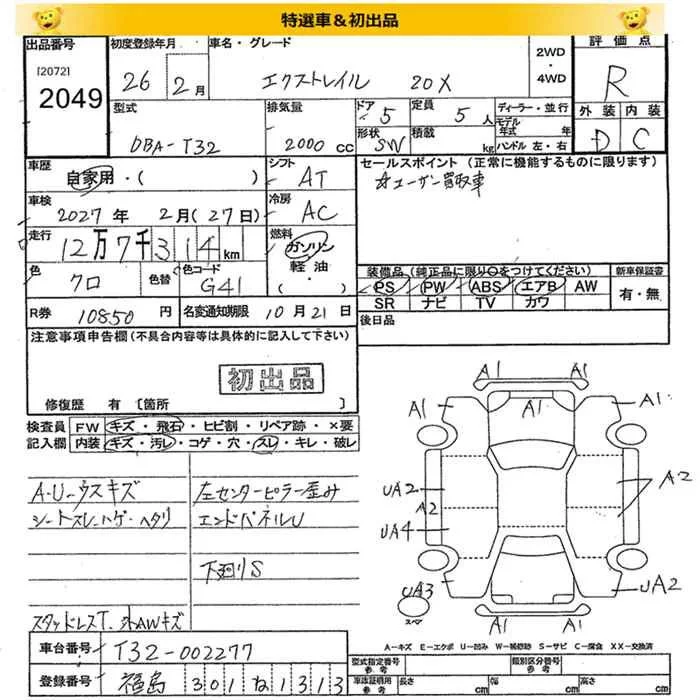 特選車＆初出品
出品番号 初度登録年月 車名・グレード 2WD・4WD 評価点
[2072]
2049
26年 2月 エクストレイル 20X R
型式 排気量 ドア 5 定員 5人 ディーラー・並行 外装 内装
DBA-T32 2000cc 形状 SW 積載 kg モデル年式 年 ハンドル 左・右 D C
車歴 自家用・( ) シフト AT セールスポイント (正常に機能するものに限ります)
☆ユーザー買取車
車検 2027年 2月(27日) 冷房 AC
走行 12万7千314km 燃料 ガソリン・軽油・( )
色 クロ 色替 色コード G41
装備品 (純正品に限り○をつけてください) 新車保証書
PS PW ABS エアB AW 有・無
SR ナビ TV カワ
R券 10850円 名変通知期限 10月21日 後日品
注意事項申告欄 (不具合内容等は具体的に記入して下さい)
初出品
修復歴 有 [箇所 ]
検査員記入欄 FW キズ・飛石・ヒビ割・リペア跡・×要
内装 キズ・汚レ・コゲ・穴・スレ・キレ・破レ
A・Uーウスキズ 左センターピラー歪み
シートスレ・ハゲ・ヘタリ エンドパネルU
下廻りS
スタッドレスT. 外AWキズ
A1 A1
A1 A1 A1
UA2 A2
A2
UA4
UA3 UA2
スペア
A1 A1
A－キズ E－エクボ U－凹み W－補修跡 S－サビ C－腐食 XX－交換済
車台番号 T32-002277 型式指定番号 参考 類別区分番号 参考
登録番号 福島 301 ね 1313 車体証明用 参考 長さ cm 幅 cm 高さ cm